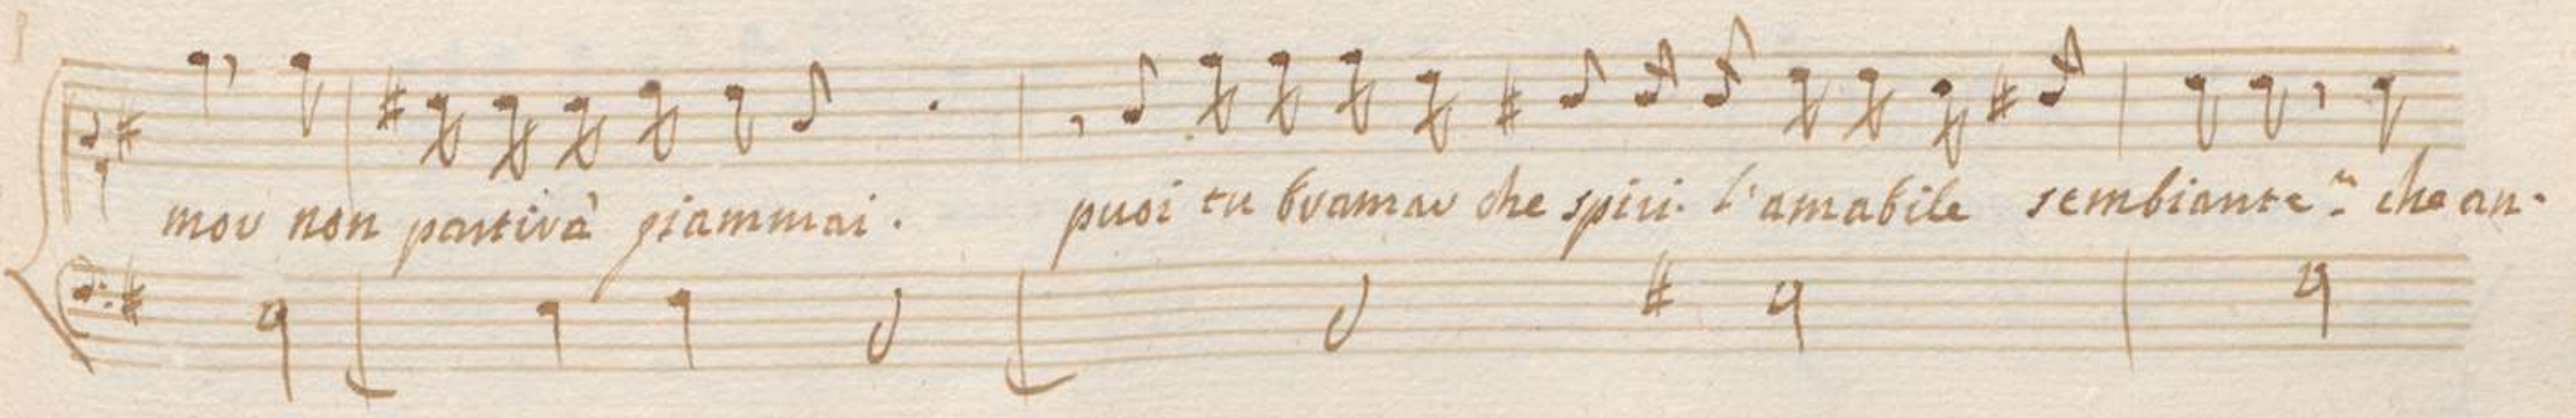 mor non partirà giammai. puoi tu bramar che spiri. l'amabile sembiante: che an-